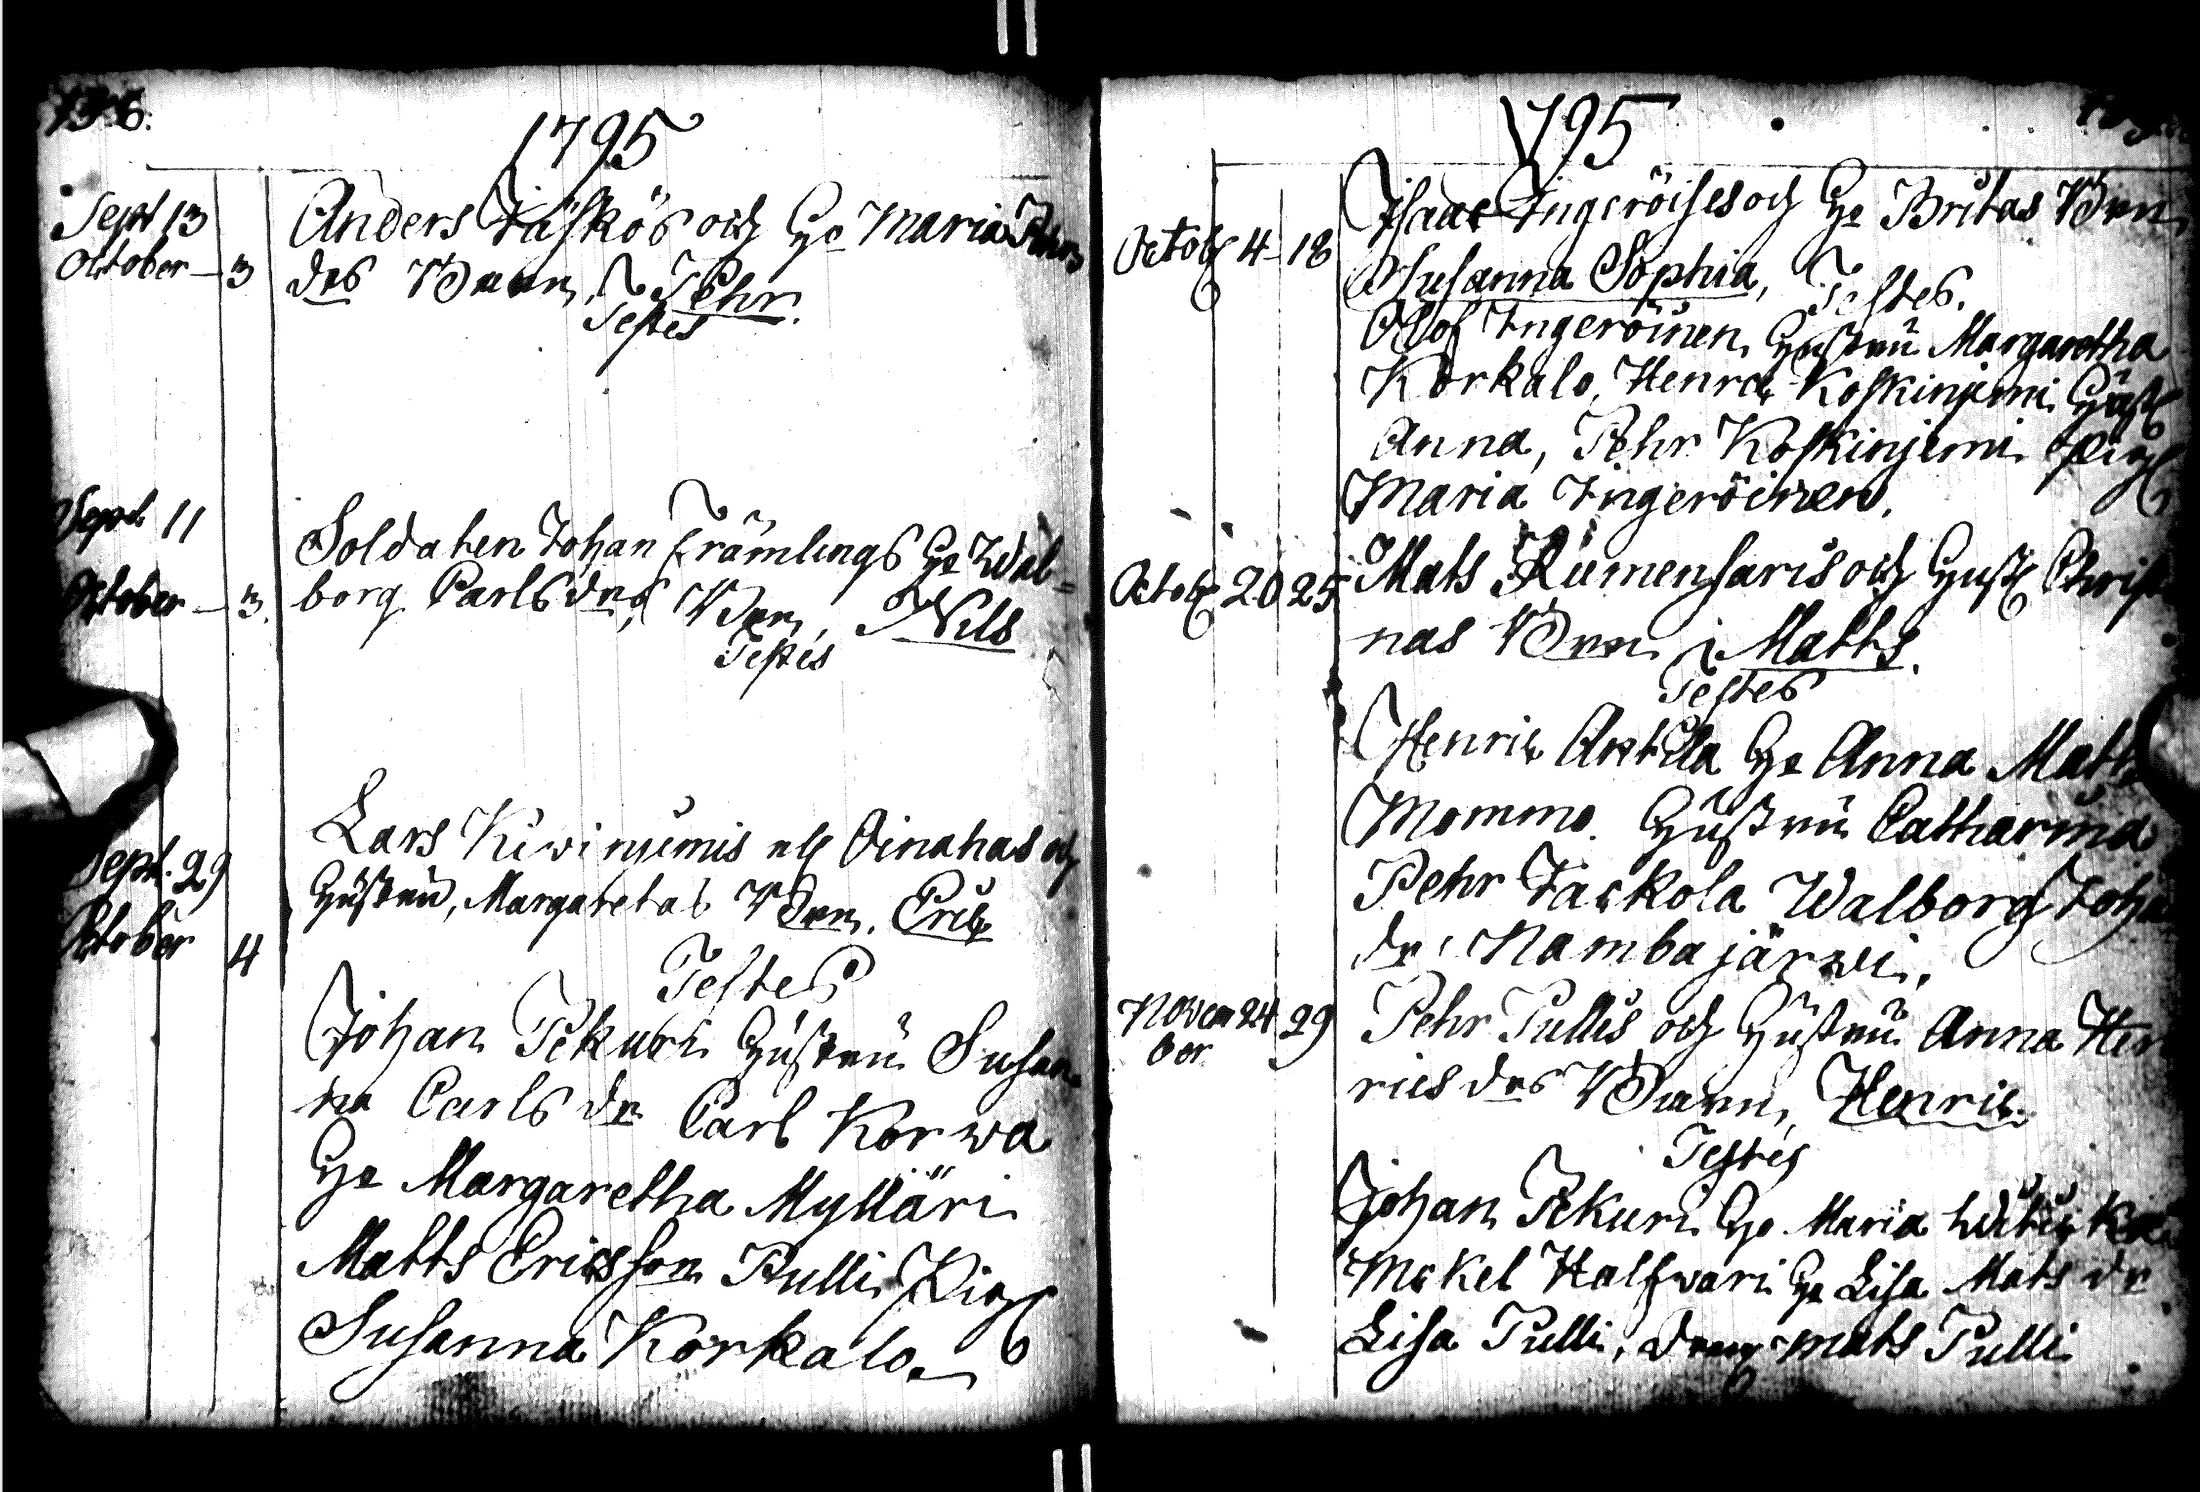 136.
1795
Sept 13
October – 3
Anders Jäskös och H:u Maria Pehrs
drs Barn, Pehr.
Testes
Sept 11
October – 3.
Soldaten Johan Främlings H:u Wal=
borg Carlsdrs, Barn, Nils
Testes
Sept. 29
October 4
Lars Kiviniemis Oinahas och
Hustru, Margaretas Barn. Eric
Testes
Johan Pekuri Hustru Susan
na Carls dr Carl Korwa
H:u Margaretha Mylläri
Matts Ericsson Pulli Pig
Susanna Korkalo.
1795
Octob 4 – 18
Isaac Ingeröises och H:u Britas Barn
Susanna Sophia, Testes.
Olof Ingeröinen, Hustru Margaretha
Korkalo, Henric Koskinjemi Hust
Anna, Pehr Koskinjemi Pig
Maria Ingeröinen.
Octob 20 25
Mats Kumensaris och Hust Christi
nas Barn Matts.
Testes
Henric Anttila H:u Anna Matts
Mommo. Hustru Catharina
Pehr Jackola Walborg Joha
dr Nambajärwi.
Novem 24 29
ber
Pehr Pullis och Hustru Anna Hen
rics drs Barn, Henric.
Testes
Johan Pekuri H:u Maria
Mickel Halfwari H:u Lisa Mats dr
Lisa Pulli, Dräng Mats Pulli